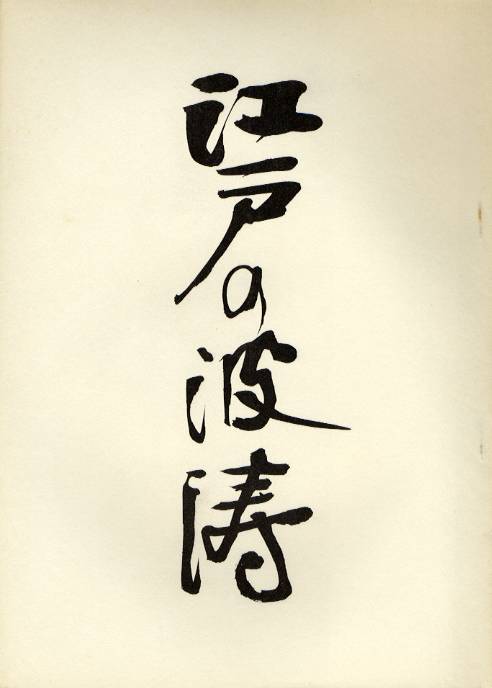 江戸の波涛